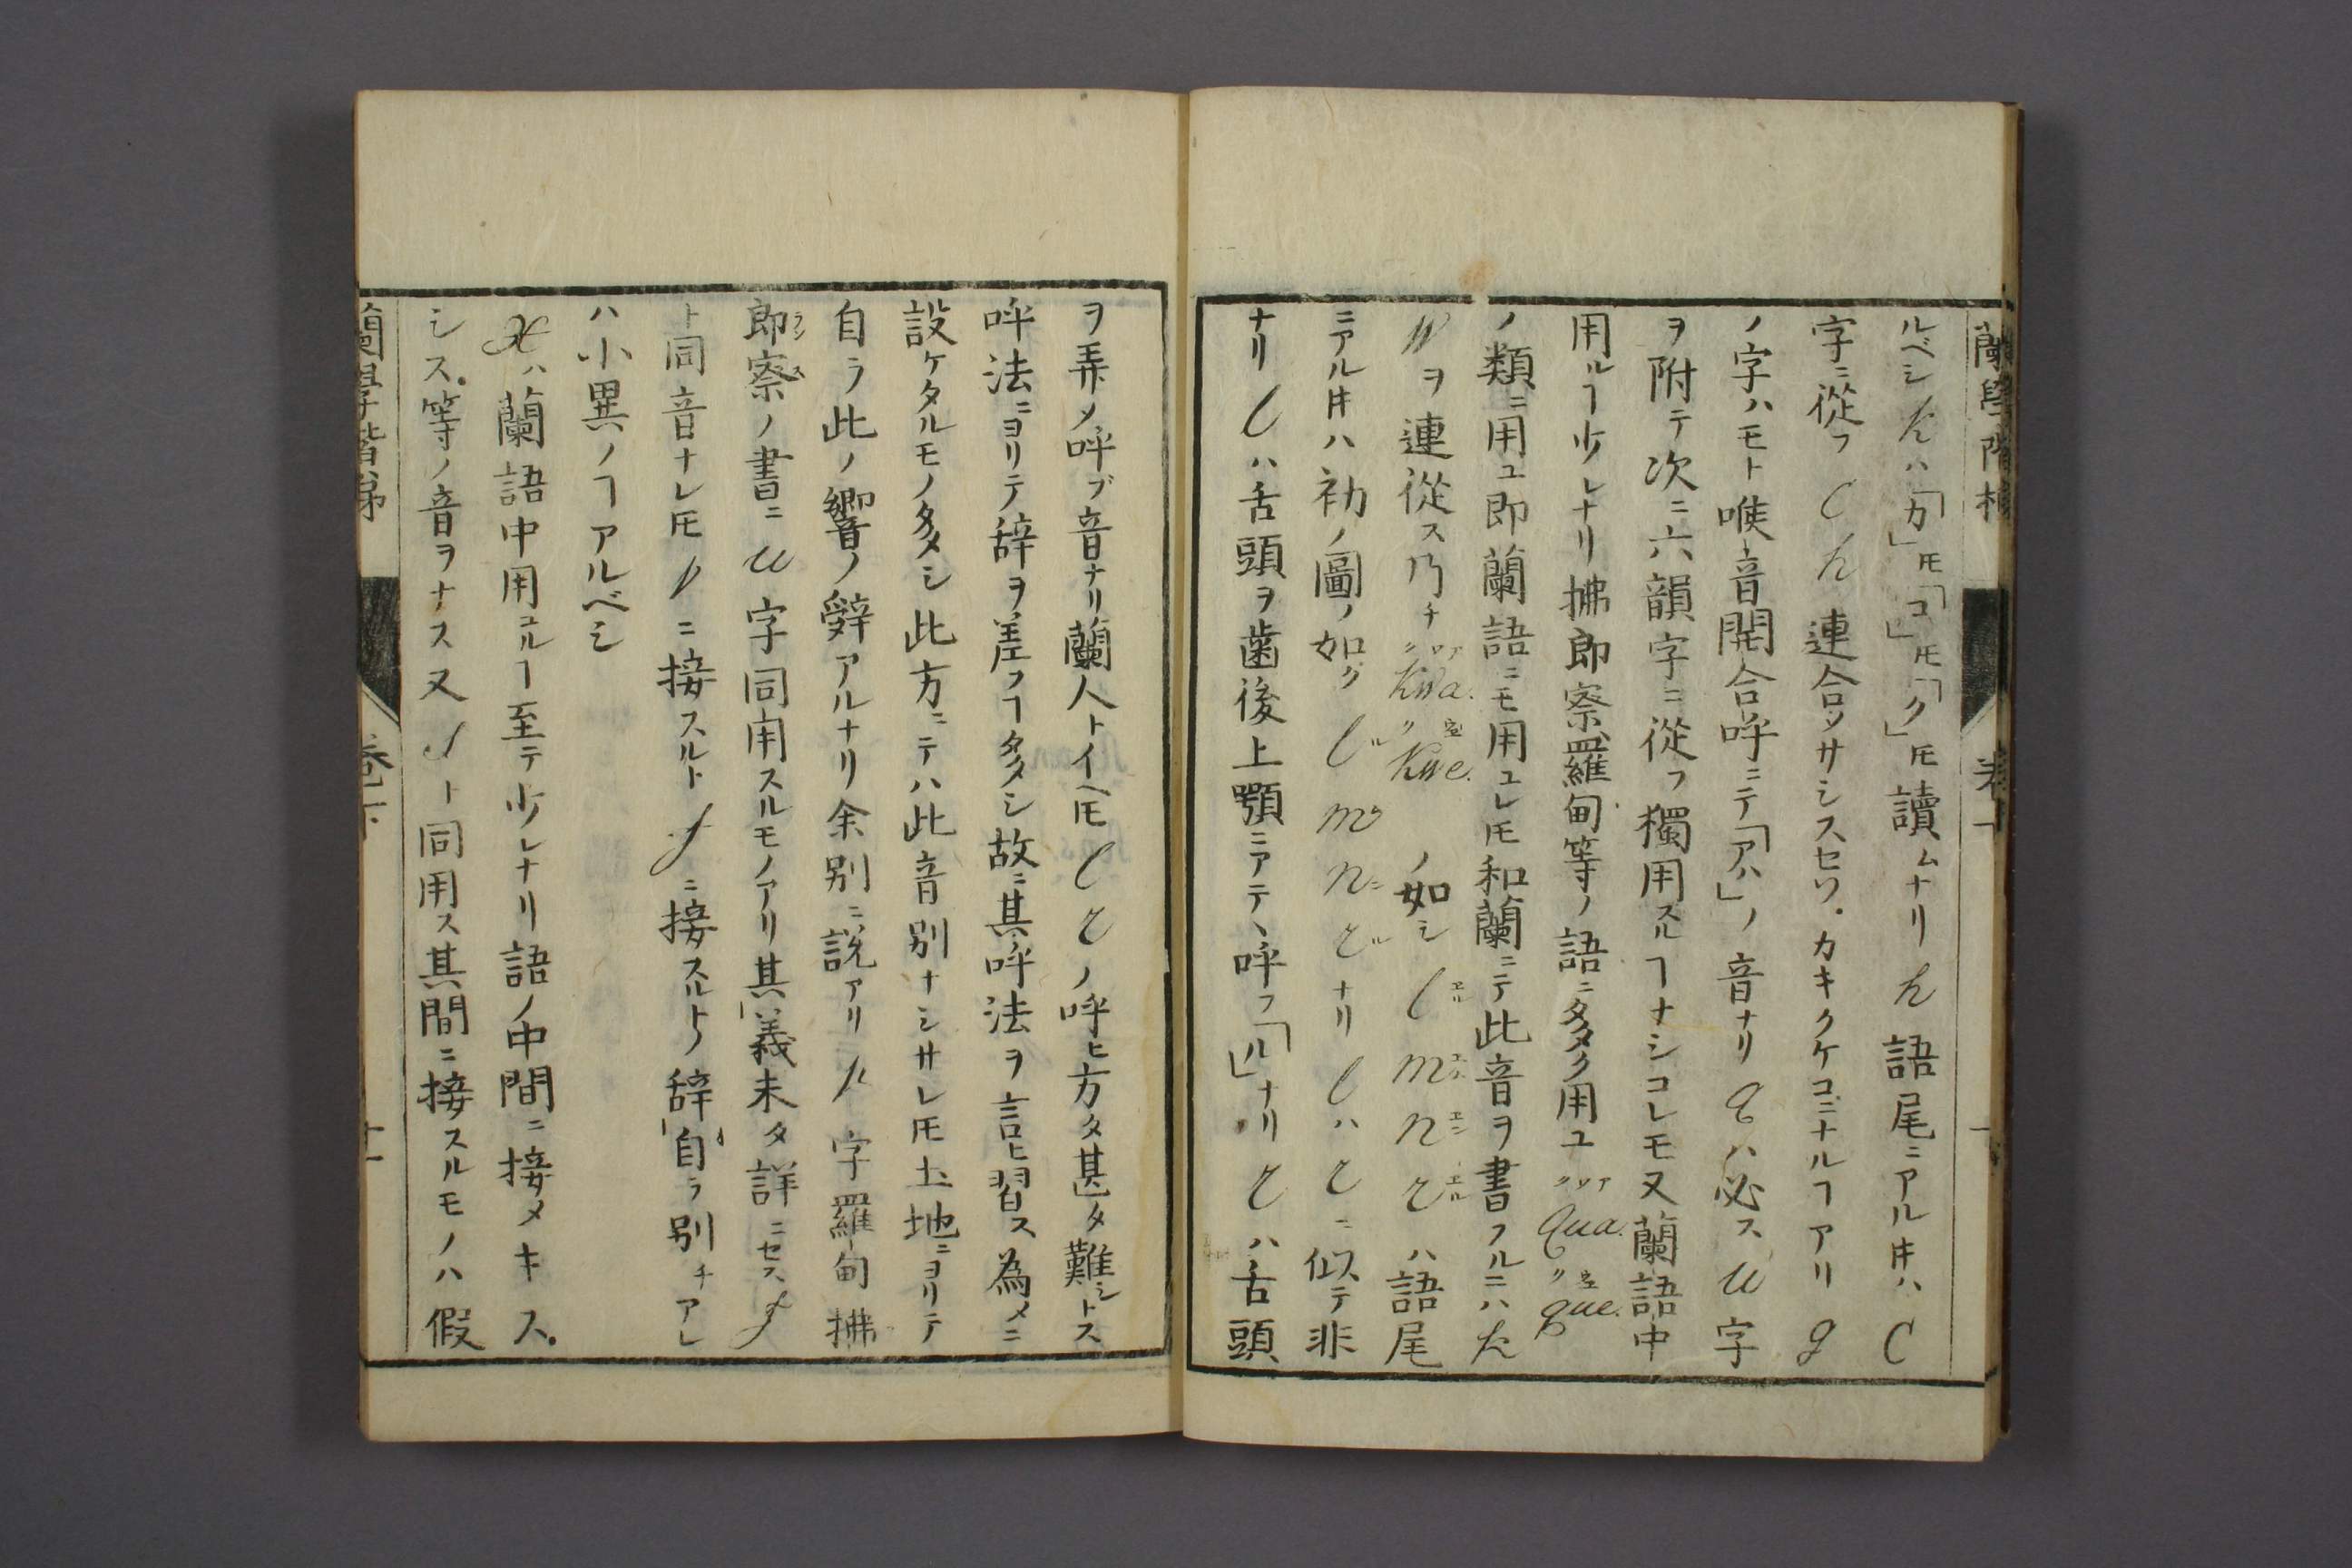 蘭學階梯
卷下
ルベシkハ「カ」𪜈「コ」𪜈「ク」𪜈讀ムナリk語尾ニアル𪜈ハC
字ニ從フCh連合シサシスセソ.カキクケコニナルヿアリg
ノ字ハモト喉音開合呼ニテ「アハ」ノ音ナリqハ必スu字
ヲ附テ次ニ六韻字ニ從フ獨用スルヿナシコレモ又蘭語中
用ルヿ少レナリ拂郎察羅甸等ノ語ニ多ク用ユqua.que.
ノ類ニ用ユ即蘭語ニモ用ユレ𪜈和蘭ニテ此音ヲ書フルニハk
wヲ連從ス乃チkwa.kwe.ノ如シl m n rハ語尾
ニアル𪜈ハ初ノ圖ノ如クl m n rナリlハrニ似テ非
ナリlハ舌頭ヲ歯後上顎ニアテヽ呼フ「ル」ナリrハ舌頭
ヲ弄メ呼ブ音ナリ蘭人トイヘ𪜈l rノ呼ヒ方タ甚タ難シトス
呼法ニヨリテ辞ヲ差フヿ多シ故ニ其呼法ヲ言ヒ習ス為メニ
設ケタルモノ多シ此方ニテハ此音別ナシサレ𪜈土地ニヨリテ
自ラ此ノ響ノ辭アルナリ余別ニ説アリk字羅甸拂
郎察ノ書ニu字同用スルモノアリ其義未タ詳ニセスf
ト同音ナレ𪜈pニ接スルトfニ接スルトノ辞自ラ別チアレ
ハ小異ノヿアルベシ
xハ蘭語中用ユルヿ至テ少レナリ語ノ中間ニ接メキス.
シス.等ノ音ヲナス又sト同用ス其間ニ接スルモノハ假
蘭學階梯
卷下
十一